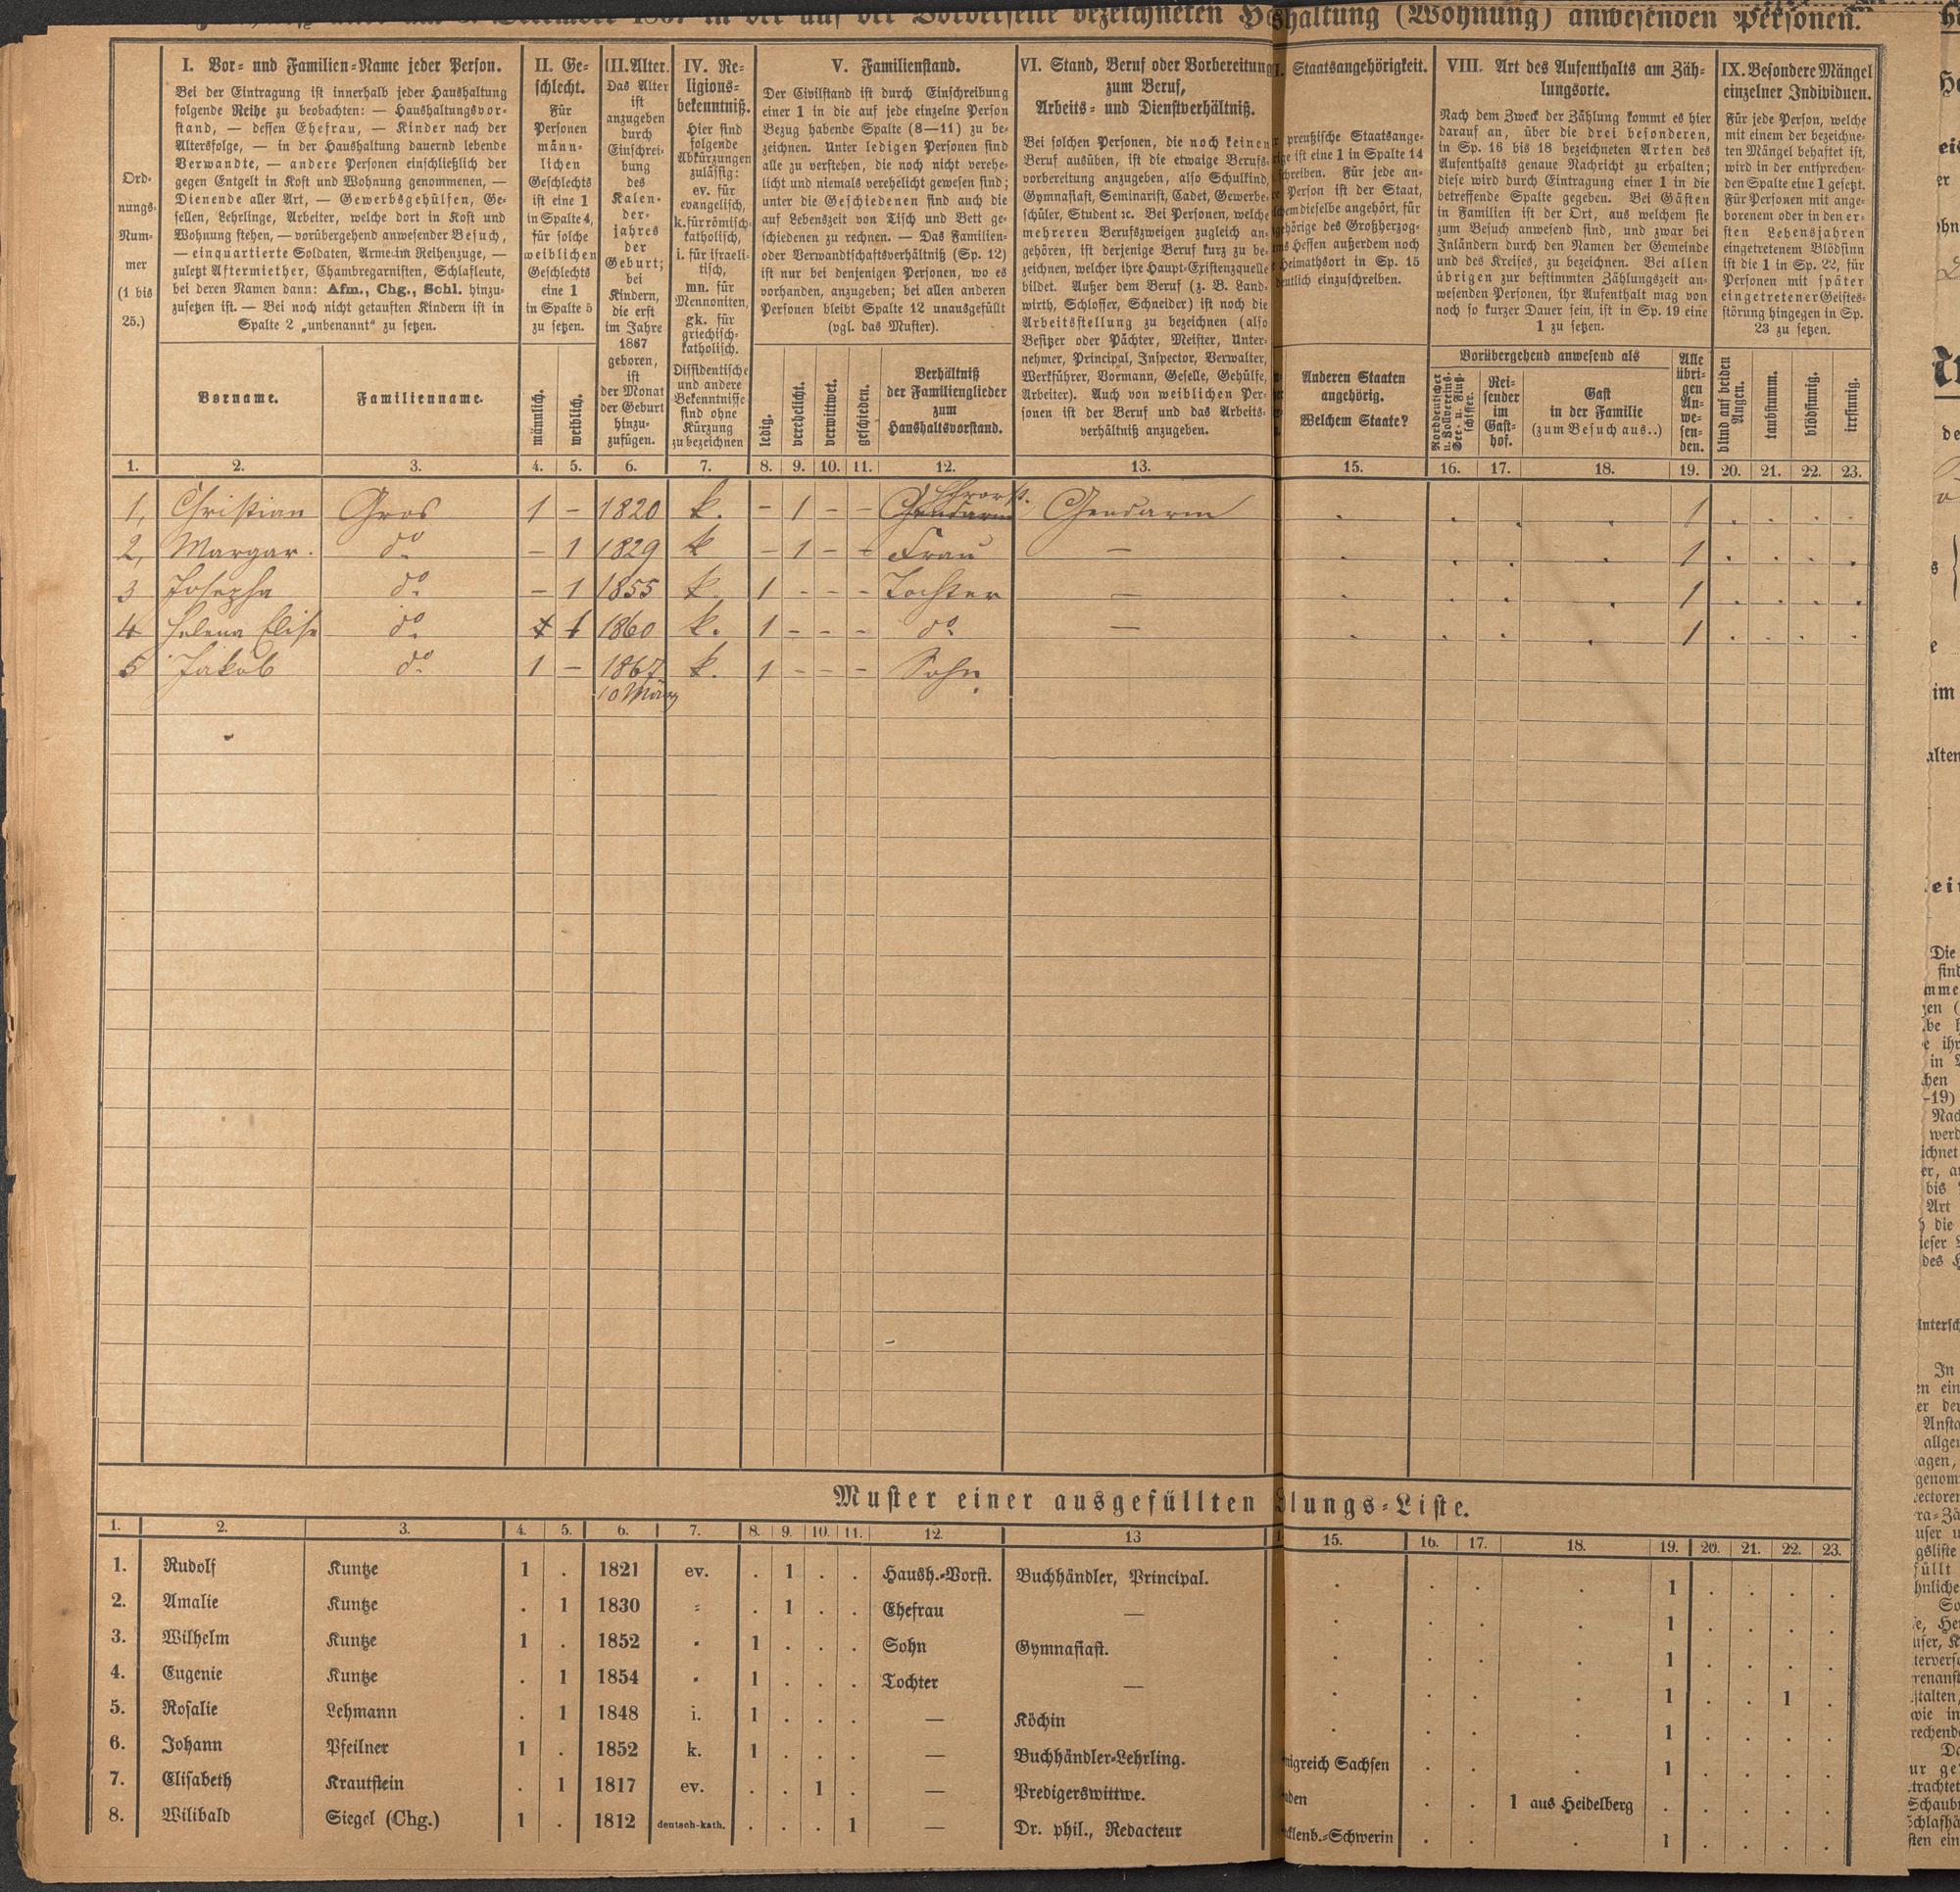 in der auf der Vorderseite bezeichneten haltung (Wohnung) anwesenden Personen.
Ord-
nungs-
Num-
mer
(1 bis
25.)
I. Vor- und Familien-Name jeder Person.
Bei der Eintragung ist innerhalb jeder Haushaltung
folgende Reihe zu beobachten: — Haushaltungsvor-
stand, — dessen Ehefrau, — Kinder nach der
Altersfolge, — in der Haushaltung dauernd lebende
Verwandte, — andere Personen einschließlich der
gegen Entgelt in Kost und Wohnung genommenen, —
Dienende aller Art, — Gewerbsgehülfen, Ge-
sellen, Lehrlinge, Arbeiter, welche dort in Kost und
Wohnung stehen, — vorübergehend anwesender Besuch,
— einquartierte Soldaten, Arme im Reihenzuge, —
zuletzt Aftermiether, Chambregarnisten, Schlafleute,
bei deren Namen dann: Afm., Chg., Schl. hinzu-
zusetzen ist. — Bei noch nicht getauften Kindern ist in
Spalte 2 „unbenannt“ zu setzen.
Vorname.
Familienname.
II. Ge-
schlecht.
Für
Personen
männ-
lichen
Geschlechts
ist eine 1
in Spalte 4,
für solche
weiblichen
Geschlechts
eine 1
in Spalte 5
zu setzen.
männlich.
weiblich.
III. Alter.
Das Alter
ist
anzugeben
durch
Einschrei-
bung
des
Kalen-
der-
jahres
der
Geburt;
bei
Kindern,
die erst
im Jahre
1867
geboren,
ist
der Monat
der Geburt
hinzu-
zufügen.
IV. Re-
ligions-
bekenntniß.
Hier sind
folgende
Abkürzungen
zulässig:
ev. für
evangelisch,
k. für römisch-
katholisch,
i. für israeli-
tisch,
mn. für
Mennoniten,
gk. für
griechisch-
katholisch.
Dissidentische
und andere
Bekenntnisse
sind ohne
Kürzung
zu bezeichnen
V. Familienstand.
Der Civilstand ist durch Einschreibung
einer 1 in die auf jede einzelne Person
Bezug habende Spalte (8—11) zu be-
zeichnen. Unter ledigen Personen sind
alle zu verstehen, die noch nicht verehe-
licht und niemals verehelicht gewesen sind;
unter die Geschiedenen sind auch die
auf Lebenszeit von Tisch und Bett ge-
schiedenen zu rechnen. — Das Familien-
oder Verwandtschaftsverhältniß (Sp. 12)
ist nur bei denjenigen Personen, wo es
vorhanden, anzugeben; bei allen anderen
Personen bleibt Spalte 12 unausgefüllt
(vgl. das Muster).
ledig.
verehelicht.
verwittwet.
geschieden.
Verhältniß
der Familienglieder
zum
Haushaltsvorstand.
VI. Stand, Beruf oder Vorbereitung
zum Beruf,
Arbeits- und Dienstverhältniß.
Bei solchen Personen, die noch keinen
Beruf ausüben, ist die etwaige Berufs-
vorbereitung anzugeben, also Schulkind,
Gymnasiast, Seminarist, Cadet, Gewerbe-
schüler, Student ꝛc. Bei Personen, welche
mehreren Berufszweigen zugleich an-
gehören, ist derjenige Beruf kurz zu be-
zeichnen, welcher ihre Haupt-Existenzquelle
bildet. Außer dem Beruf (z. B. Land-
wirth, Schlosser, Schneider) ist noch die
Arbeitsstellung zu bezeichnen (also
Besitzer oder Pächter, Meister, Unter-
nehmer, Principal, Inspector, Verwalter,
Werkführer, Vormann, Geselle, Gehülfe,
Arbeiter). Auch von weiblichen Per-
sonen ist der Beruf und das Arbeits-
verhältniß anzugeben.
Staatsangehörigkeit.
preußische Staatsange-
ist eine 1 in Spalte 14
schreiben. Für jede an-
Person ist der Staat,
dieselbe angehört, für
gehörige des Großherzog-
Hessen außerdem noch
Heimathsort in Sp. 15
einzuschreiben.
Anderen Staaten
angehörig.
Welchem Staate?
VIII. Art des Aufenthalts am Zäh-
lungsorte.
Nach dem Zweck der Zählung kommt es hier
darauf an, über die drei besonderen,
in Sp. 16 bis 18 bezeichneten Arten des
Aufenthalts genaue Nachricht zu erhalten;
diese wird durch Eintragung einer 1 in die
betreffende Spalte gegeben. Bei Gästen
in Familien ist der Ort, aus welchem sie
zum Besuch anwesend sind, und zwar bei
Inländern durch den Namen der Gemeinde
und des Kreises, zu bezeichnen. Bei allen
übrigen zur bestimmten Zählungszeit an-
wesenden Personen, ihr Aufenthalt mag von
noch so kurzer Dauer sein, ist in Sp. 19 eine
1 zu setzen.
Vorübergehend anwesend als
Norddeutscher
u. Zollvereins-
See- u. Fluß-
schiffer.
Rei-
sender
im
Gast-
hof.
Gast
in der Familie
(zum Besuch aus..)
Alle
übri-
gen
An-
we-
sen-
den.
IX. Besondere Mängel
einzelner Individuen.
Für jede Person, welche
mit einem der bezeichne-
ten Mängel behaftet ist,
wird in der entsprechen-
den Spalte eine 1 gesetzt.
Für Personen mit ange-
borenem oder in den er-
sten Lebensjahren
eingetretenem Blödsinn
ist die 1 in Sp. 22, für
Personen mit später
eingetretener Geistes-
störung hingegen in Sp.
23 zu setzen.
blind auf beiden
Augen.
taubstumm.
blödsinnig.
irrsinnig.
1. 2. 3. 4. 5. 6. 7. 8. 9. 10. 11. 12. 13. 15. 16. 17. 18. 19. 20. 21. 22. 23.
1, Christian Gros 1 – 1820 k. – 1 – – Gendarm 1
2, Margar. do – 1 1829 k – 1 – – Frau — 1
3 Josepha do – 1 1855 k. 1 – – – Tochter — 1
4 Helena Elise do 1 1860 k. 1 – – – do — 1
5 Jakob do 1 – 1867 k. 1 – – – Sohn
10 März
Muster einer ausgefüllten lungs-Liste.
1. 2. 3. 4. 5. 6. 7. 8. 9. 10. 11. 12. 13 15. 16. 17. 18. 19. 20. 21. 22. 23.
1. Rudolf Kuntze 1 . 1821 ev. . 1 . . Haush.-Vorst. Buchhändler, Principal. . . . . 1 . . . .
2. Amalie Kuntze . 1 1830 = . 1 . . Ehefrau — . . . . 1 . . . .
3. Wilhelm Kuntze 1 . 1852 " 1 . . . Sohn Gymnasiast. . . . . 1 . . . .
4. Eugenie Kuntze . 1 1854 " 1 . . . Tochter — . . . . 1 . . 1 .
5. Rosalie Lehmann . 1 1848 i. 1 . . . — Köchin . . . . 1 . . . .
6. Johann Pfeilner 1 . 1852 k. 1 . . . — Buchhändler-Lehrling. nigreich Sachsen . . . 1 . . . .
7. Elisabeth Krautstein . 1 1817 ev. . . 1 . — Predigerswittwe. aden . . 1 aus Heidelberg . . . . .
8. Wilibald Siegel (Chg.) 1 . 1812 deutsch-kath. . . . 1 — Dr. phil., Redacteur cklenb.-Schwerin . . . 1 . . . .